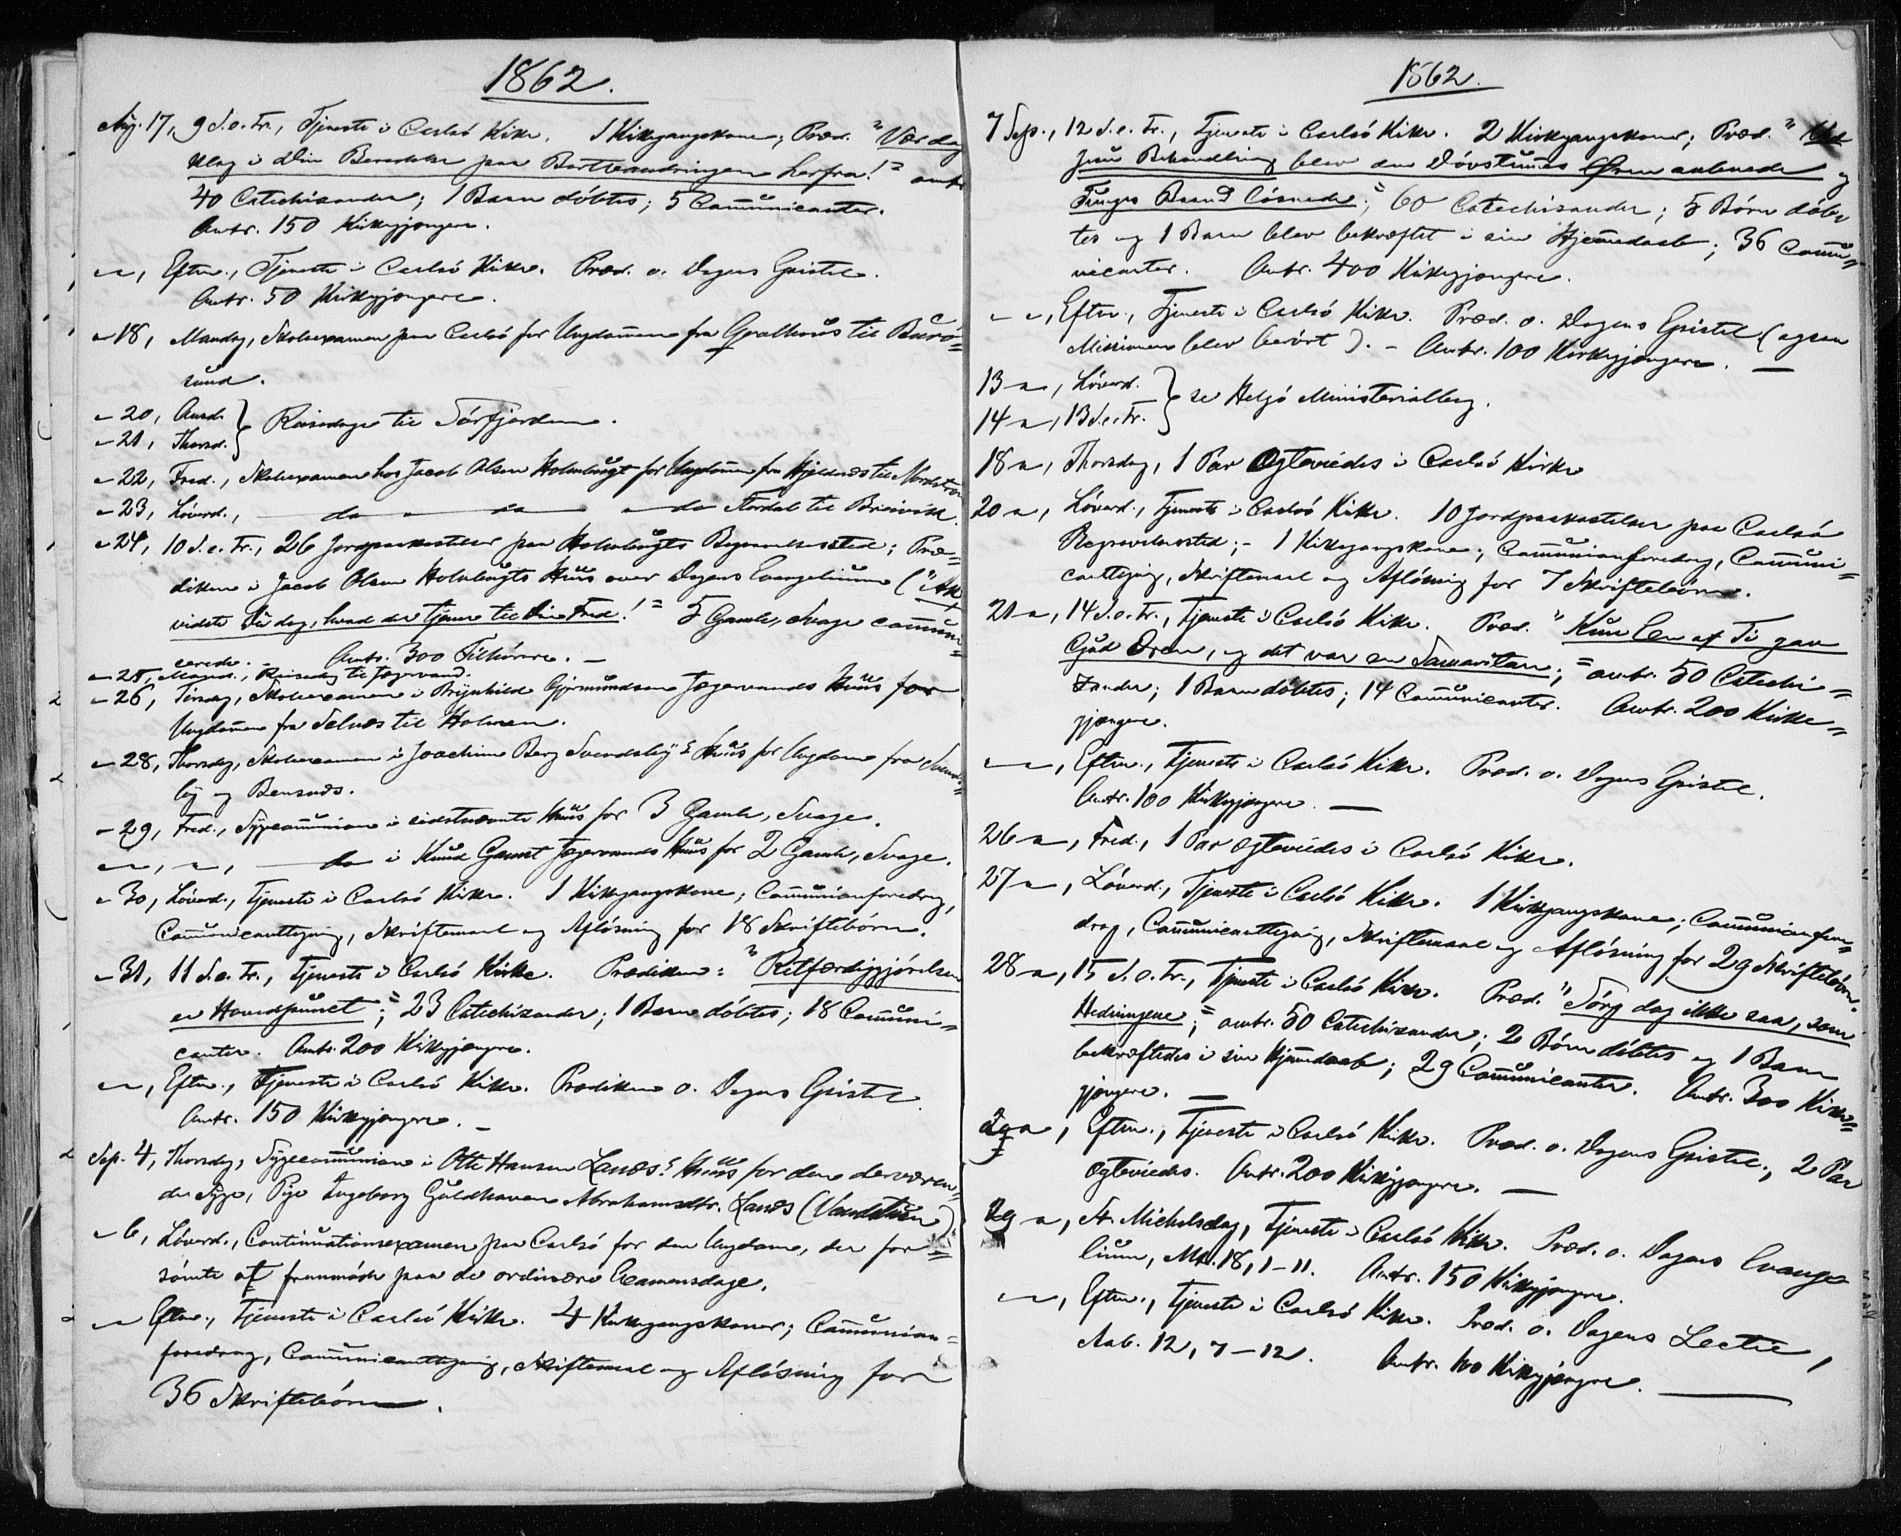 1862.
Aug. 17, 9 S. e. Tr., Tjeneste i Carlsö Kirke. 1 Kirkegangskone; Præd. "Vær dog
klog i din Beredelse paa Bortvandringen herfra!" omtr.
40 Catechisander; 1 Barn döbtes; 5 Communicanter.
Omtr. 150 Kirkegjengere.
" ", Efterm., Tjeneste i Carlsö Kirke. Præd. o. Dagens Epistel.
Omtr. 50 Kirkegjengere.
" 18, Mandag, Skoleexamen paa Carlsö for Ungdommen fra Grathous til Burö-
sund.
" 20, Onsd. } Reisedage til Sörfjorden.
" 21, Thorsd.
" 22, Fred., Skoleexamen hos Jacob Olsen Holmbugt for Ungdommen fra Hjeldnæs til Nordstrøm
" 23, Löverd., do do do Stordal til Breivik.
" 24, 10 S. e. Tr., 26 Jordpaakastelser paa Holmbugts Begravelsessted; Præ-
diken i Jacob Olsen Holmbugts Huus over Dagens Evangelium ("Ak
vidste Du dog, hvad der tjener til Din Fred!" 5 Gamle, Svage commun-
cerede. Omtr. 300 Tilhörere. —
" 25, Mand., Reisedag til Jægervand.
" 26, Tirsdag, Skoleexamen i Brynhild Gjermundsen Jægervands Huus for
Ungdommen fra Selnæs til Holmen.
" 28, Thorsdag, Skoleexamen i Joachim Berg Svendsby's Huus for Ungdom fra Svends-
by og Bensnæs.
" 29, Fred., Sygecommunion i sidstnævnte Huus for 3 Gamle, Svage.
" ", ", do i Knud Gamst Jægervands Huus for 2 Gamle, Svage.
" 30, Löverd., Tjeneste i Carlsö Kirke. 1 Kirkegangskone; Communionforedrag,
Communicanttegning, Skriftemaal og Aflösning for 18 Skriftebörn.
" 31, 11 S. e. Tr., Tjeneste i Carlsö Kirke. Prædiken: "Retfærdiggjörelsen
er Hovedpunct"; 23 Catechisander; 1 Barn döbtes; 18 Communi-
canter. Omtr. 200 Kirkegjengere.
" ", Efterm., Tjeneste i Carlsö Kirke. Prædiken o. Dagens Epistel.
Omtr. 150 Kirkegjengere. —
Sep. 4, Thorsdag, Sygecommunion i Otte Hansen Lanæs's Huus for den derværen-
de Syge, Pige Ingeborg Guldhaven Abrahamsdtr. Lanæs
" 6, Löverd., Continuationsexamen paa Carlsö for den Ungdom, der for-
sömte at fremmöde paa de ordinære Examensdage.
" Efterm., Tjeneste i Carlsö Kirke. 4 Kirkegangskoner; Communion-
foredrag, Communicanttegning, Skriftemaal og Aflösning for
36 Skriftebörn.
1862.
7 Sep., 12 S. e. Tr., Tjeneste i Carlsö Kirke. 2 Kirkegangskoner; Præd. "Ved
Behandling blev den Dövstummes Øren aabnede og
Tunges Baand lösnede"; 60 Catechisander; 5 Börn döb-
tes og 1 Barn blev bekræftet i sin Hjemmedaab; 36 Commu-
nicanter. Omtr. 400 Kirkegjengere.
" ", Efterm., Tjeneste i Carlsö Kirke. Præd. o. Dagens Epistel (ogsaa
Missionen blev berört). — Omtr. 100 Kirkegjengere. —
13 ", Löverd. } se Helgö Ministerialbog.
14 ", 13 S. e. Tr.
18 ", Thorsdag, 1 Par Ægteviedes i Carlsö Kirke
20 ", Löverd., Tjeneste i Carlsö Kirke. 10 Jordpaakastelser paa Carlsö
Begravelsessted; - 1 Kirkegangskone; Communionforedrag, Communi-
canttegning, Skriftemaal og Aflösning for 7 Skriftebörn.
21 ", 14 S. e. Tr., Tjeneste i Carlsö Kirke. Præd. "Kun Een af Ti gav
Gud Æren, og det var en Samaritan"; omtr. 50 Catechi-
sander; 1 Barn döbtes; 14 Communicanter. Omtr. 200 Kirke-
gjengere.
" ", Efterm., Tjeneste i Carlsö Kirke. Præd. o. Dagens Epistel.
Omtr. 100 Kirkegjengere. —
26 ", Fred., 1 Par Ægteviedes i Carlsö Kirke.
27 ", Löverd., Tjeneste i Carlsö Kirke. 1 Kirkegangskone; Communionfore-
drag, Communicanttegning, Skriftemaal og Aflösning for 29 Skriftebörn.
28 ", 15 S. e. Tr., Tjeneste i Carlsö Kirke. Præd. "Sörg dog ikke saa, som
Hedningene"; omtr. 50 Catechisander; 2 Börn döbtes og 1 Barn
bekræftedes i sin Hjemmedaab; 29 Communicanter. Omtr. 300 Kirke-
gjengere. —
", Efterm., Tjeneste i Carlsö Kirke. Præd. o. Dagens Epistel; 2 Par
Ægteviedes. Omtr. 200 Kirkegjengere. —
29 ", St. Michelsdag, Tjeneste i Carlsö Kirke. Præd. o. Dagens Evange-
lium, Mt. 18, 1-11. Omtr. 150 Kirkegjengere.
" ", Efterm., Tjeneste i Carlsö Kirke. Præd. o. Dagens Lectie,
Aab. 12, 7-12. Omtr. 100 Kirkegjengere. —